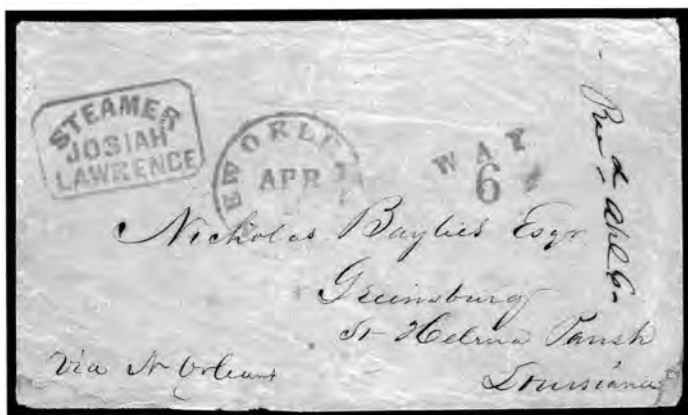 STEAMER
JOSIAH
LAWRENCE
EW ORLE
APR
WAY
6
Nicholas Baylies Esqr
Greensburg
St Helena Parish
Louisiana
Via N Orleans